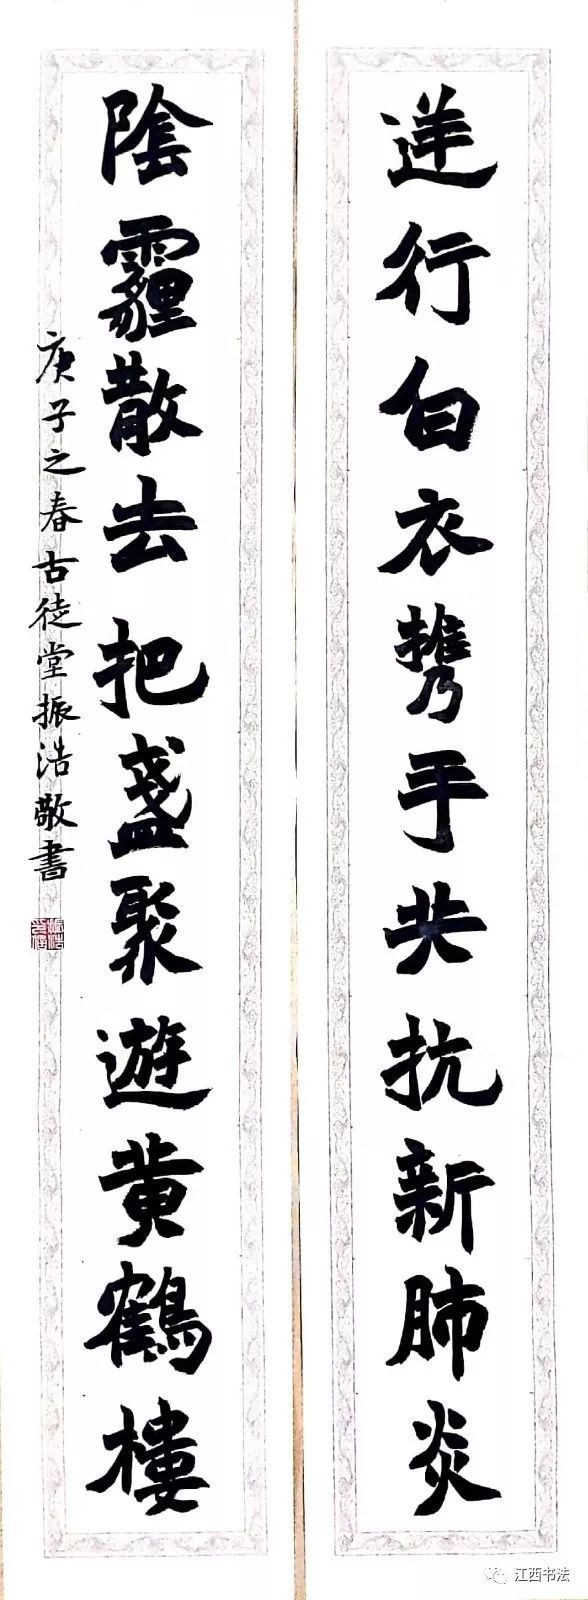 逆行白衣携手共抗新肺炎
陰霾散去把盞聚遊黄鶴樓
庚子之春古徒堂振浩敬書
江西书法